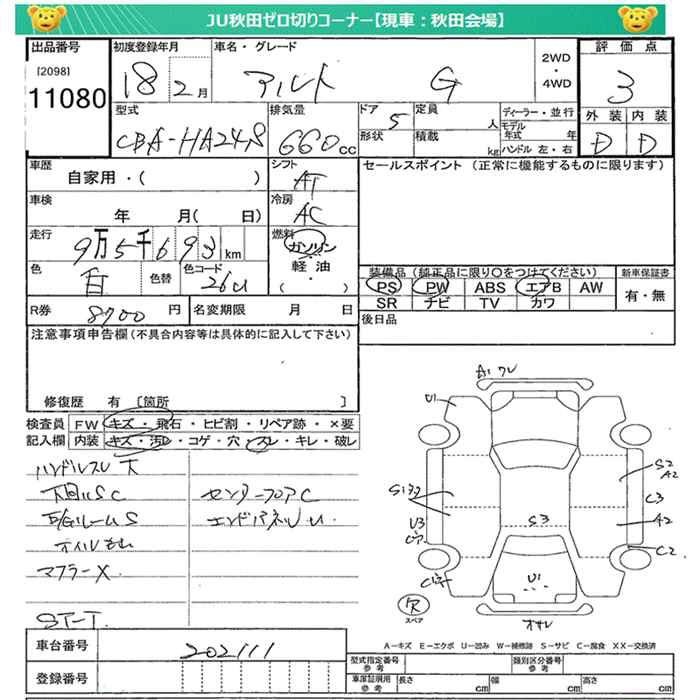 JU秋田ゼロ切りコーナー【現車：秋田会場】
出品番号
[2098]
11080
初度登録年月
18 2月
車名・グレード
アルト G
2WD
・
4WD
評価点
3
外装 内装
D D
型式
CBA-HA24S
排気量
660cc
ドア
5
形状
定員
人
積載
kg
ディーラー・並行
モデル年式 年
ハンドル 左・右
車歴
自家用・( )
シフト
AT
車検
年 月( 日)
冷房
AC
走行
9万5千693km
燃料
ガソリン
・
軽油
・
( )
色
白
色替
色コード
26U
R券
8700円
名変期限 月 日
セールスポイント (正常に機能するものに限ります)
装備品 (純正品に限り○をつけてください)
PS PW ABS エアB AW
SR ナビ TV カワ
新車保証書
有・無
後日品
注意事項申告欄(不具合内容等は具体的に記入して下さい)
修復歴 有 [箇所 ]
検査員
記入欄
FW キズ・飛石・ヒビ割・リペア跡・×要
内装 キズ・汚れ・コゲ・穴・スレ・キレ・破レ
ハンドルスレ 大
下回りSC
E/GルームS
マフラーX
センターフロアC
エンドパネルU
A1 ワレ
U1
S2
A2
C3
A2
C2
S3
U3
U1
欠
スペア
A－キズ E－エクボ U－凹み W－補修跡 S－サビ C－腐食 XX－交換済
車台番号
202111
登録番号
型式指定番号
参考
類別区分番号
参考
車庫証明用
参考
長さ cm
幅 cm
高さ cm